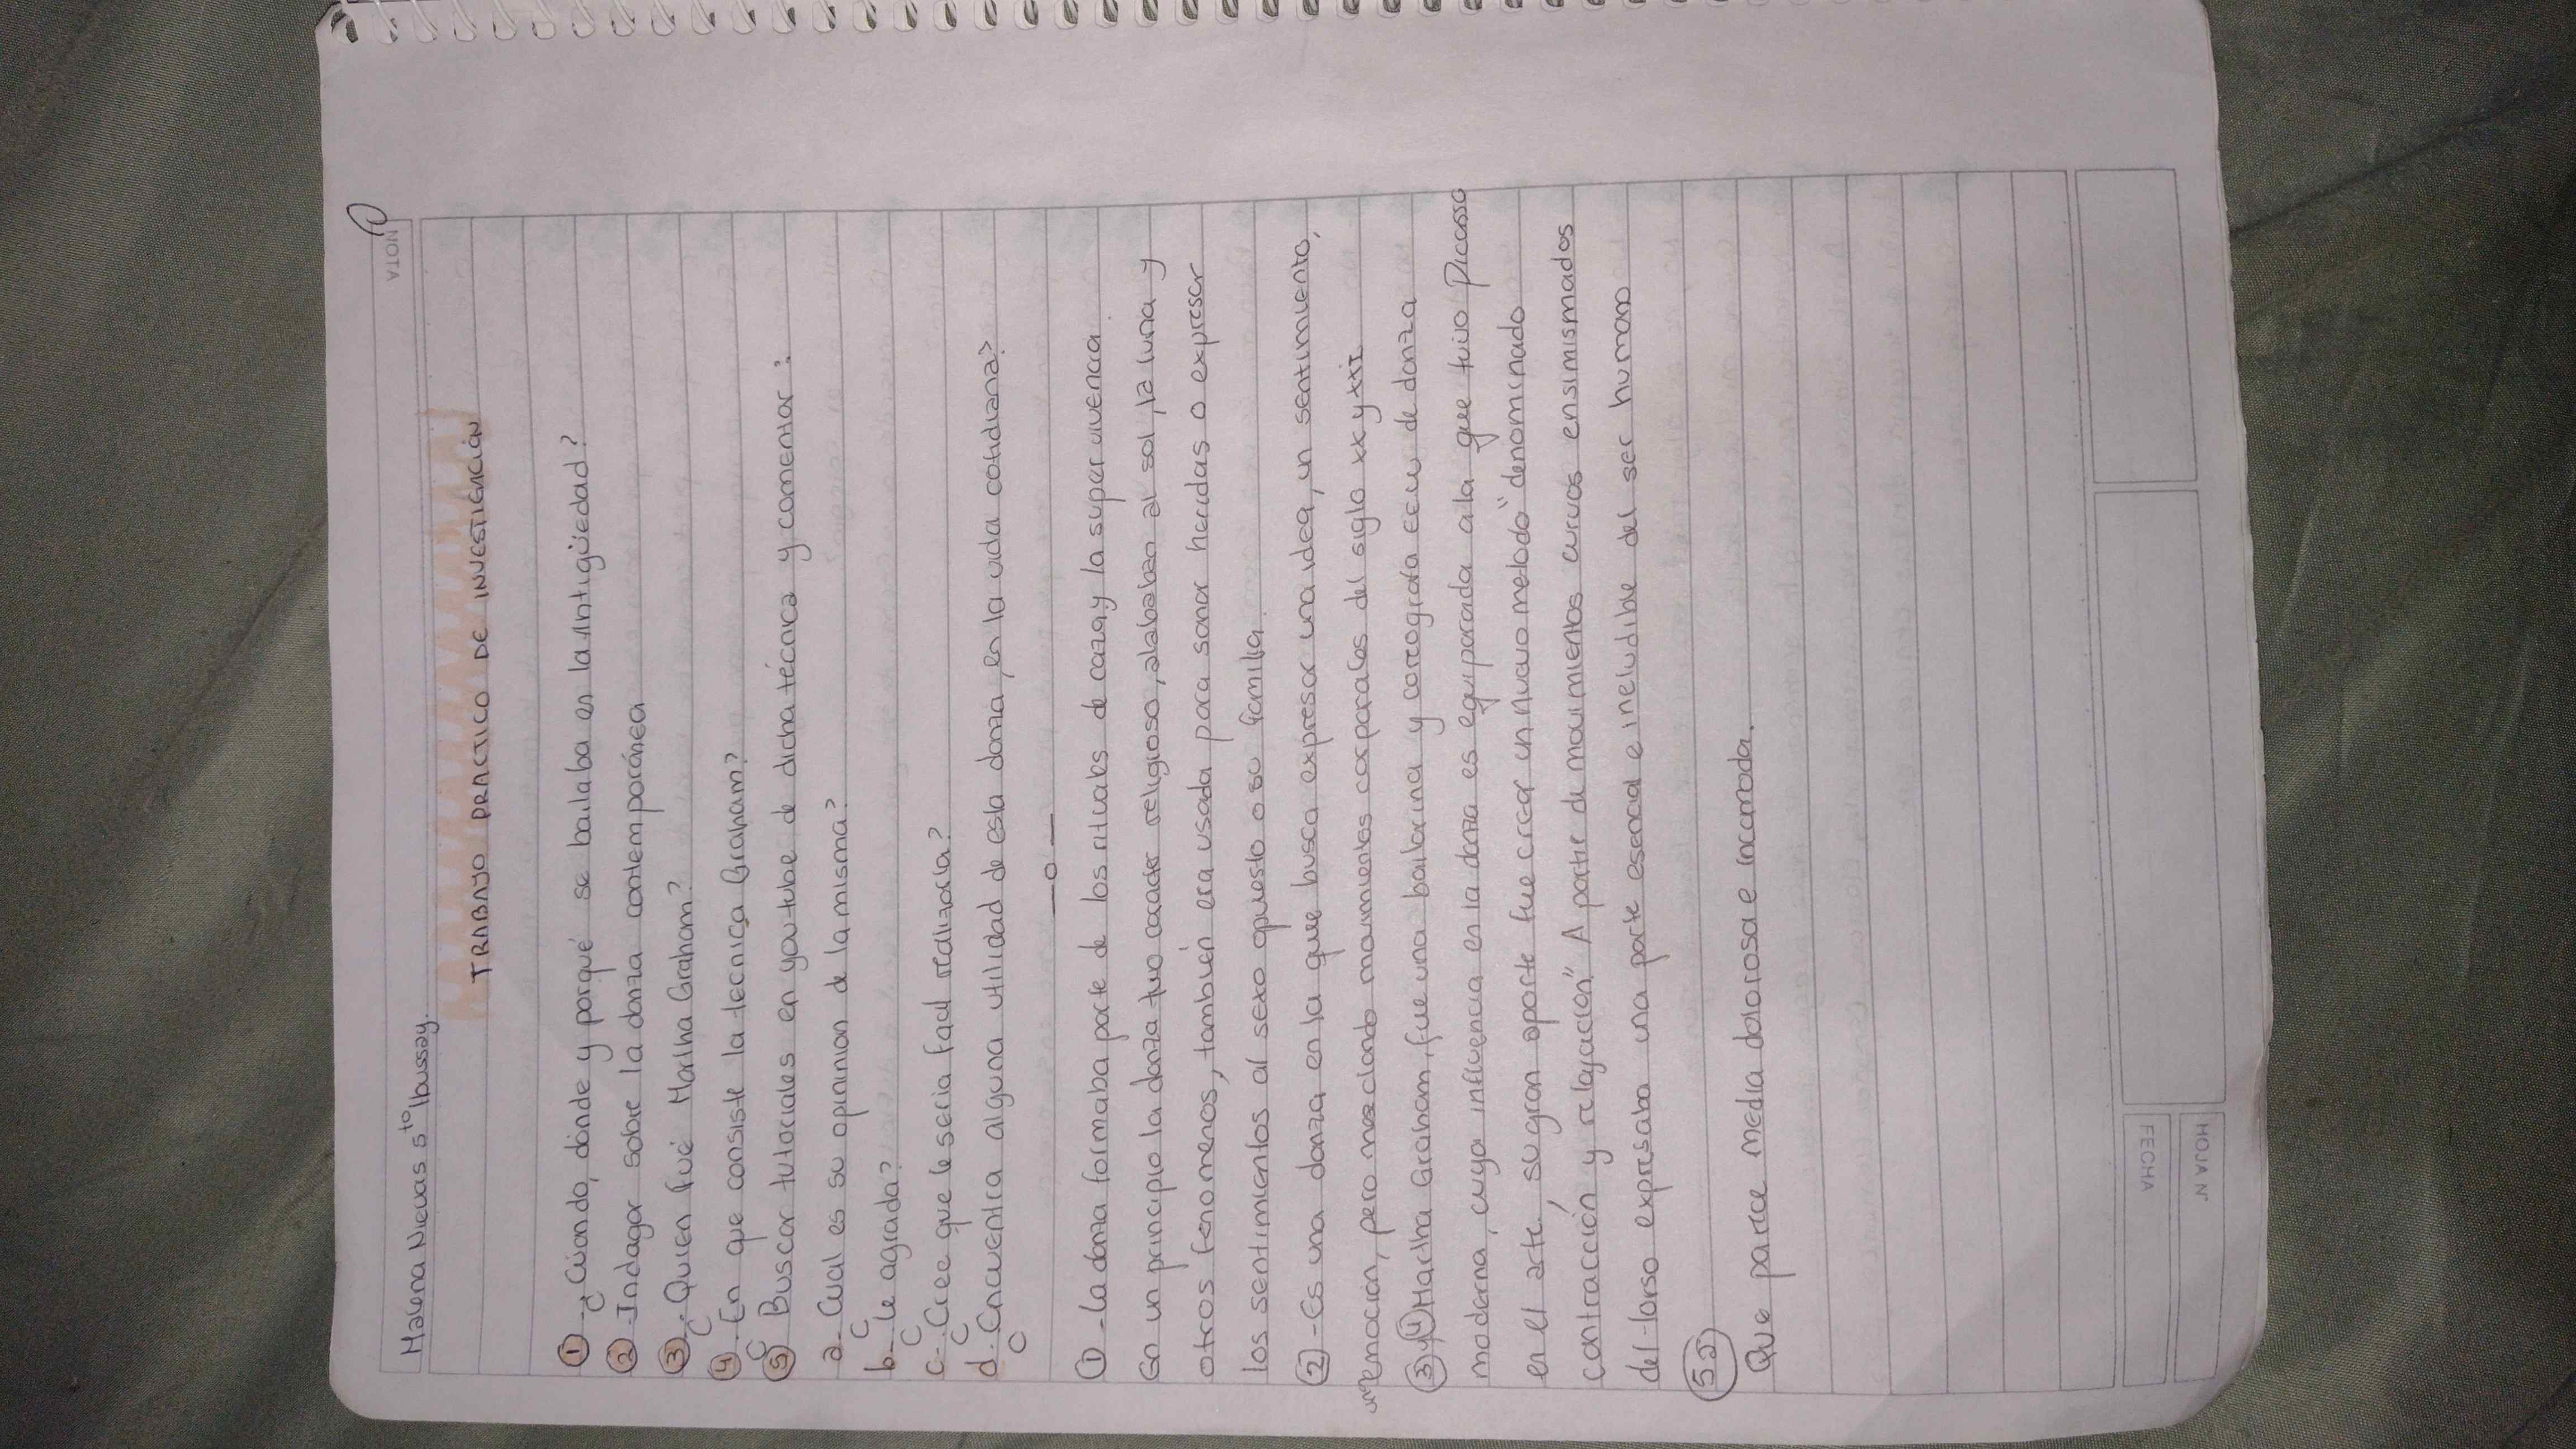 Malena Nievas 5to Ibussay.
NOTA
TRABAJO PRACTICO DE INVESTIGACIÓN
① - ¿Cúando, dónde y porqué se bailaba en la Antigüedad?
② - Indagar sobre la danza contemporánea
③ - ¿Quien fué Martha Graham?
④ - ¿En que consiste la tecnica Graham?
⑤ Buscar tutoriales en youtube de dicha técnica y comentar:
a- ¿Cual es su opinion de la misma?
b- ¿le agrada?
c- ¿Cree que le seria facil realizarla?
d- ¿Encuentra alguna utilidad de esta danza, en la vida cotidiana?
—o—
① - la danza formaba parte de los rituales de caza y la super vivencia
En un principio la danza tuvo caracter religioso, alababan al sol, la luna y
otros fenomenos, también era usada para sanar heridas o expresar
los sentimientos al sexo opuesto o su familia.
② - Es una danza en la que busca expresar una idea, un sentimiento,
emoción, pero mezclando movimientos corporales del siglo xx y xxi
③ y ④ Martha Graham, fue una bailarina y coreografa eeuu de danza
moderna, cuya influencia en la danza es equiparada a la que tuvo Picasso
en el arte, su gran aporte fue crear un nuevo metodo "denominado
contracción y relajación". A partir de movimientos curvos ensimismados
del torso expresaba una parte esencial e ineludible del ser humano
⑤a)
Que parece media dolorosa e incomoda.
FECHA
HOJA Nº